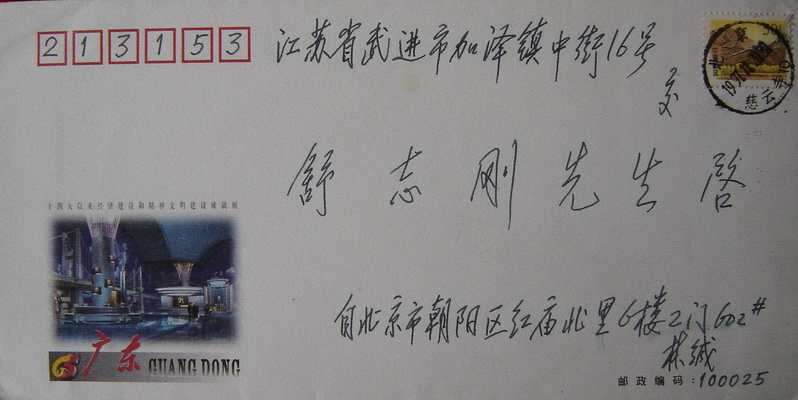 213153
江苏省武进市加泽镇中街16号
交
舒志刚先生启
十四大以来经济建设和精神文明建设成就展
广东 GUANG DONG
自北京市朝阳区红庙北里6楼2门602#
林缄
邮政编码:100025
北京
慈云寺